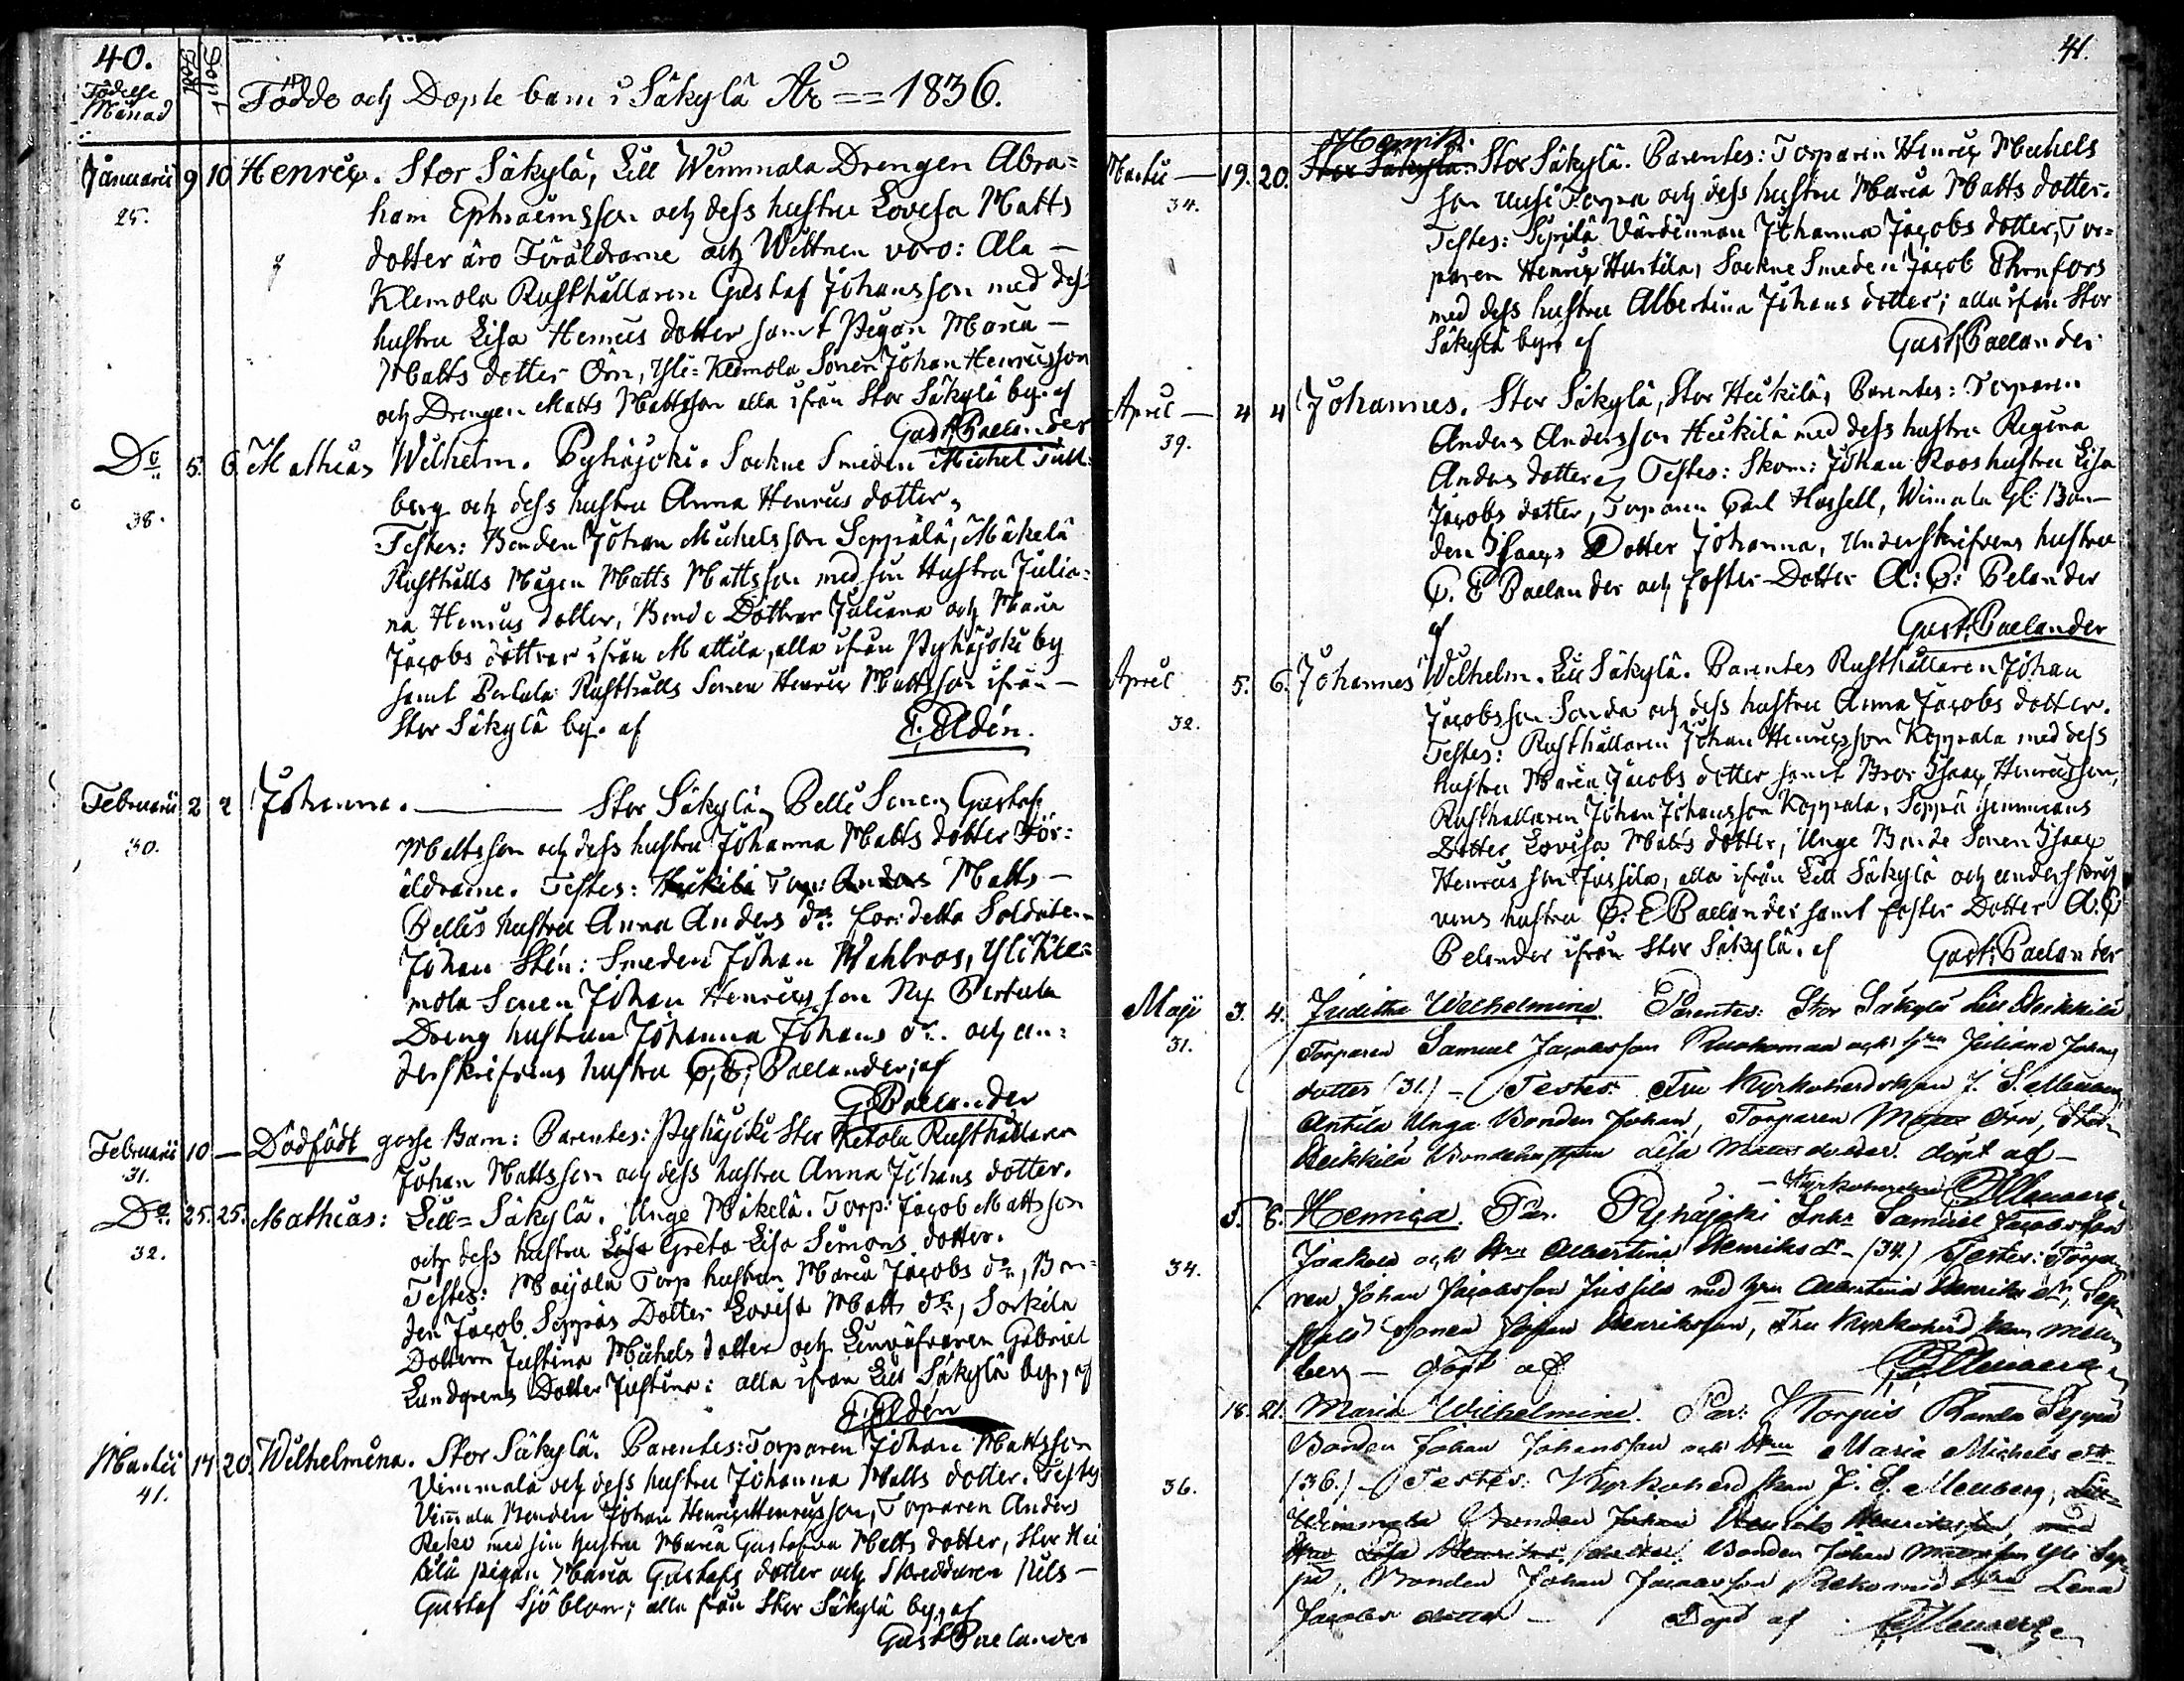 40.
Födelse Månad
Född
Döpt
Födde och Döpte barn i Säkylä År == 1836.
Januarii 9 10 Henric. Stor Säkylä, Lill Wimmala Drengen Abra=
25.
ham Ephraimsson och dess hustru Lovisa Matts
dotter äro Föräldrarne och Wittnen voro: Ala —
Klemola Rusthållaren Gustaf Johansson med dess
hustru Lisa Henrics dotter samt Pigan Maria —
Matts dotter Örn, Yli=Klemola Sonen Johan Henricsson
och Drengen Matts Mattsson alla ifrån Stor Säkylä by. af
Gust. Paelander
Do 5. 6. Mathias Wilhelm. Pyhäjoki. Sockne Smeden Michel
38.
berg och dess hustru Anna Henrics dotter,
Testes: Bonden Johan Michelsson Seppälä, Mäkelä
Rusthålls Mågen Matts Mattsson med sin Hustru Julia=
na Henrics dotter, Bonde Döttrar Juliana och Maria
Jacobs döttrar ifrån Mattila, alla ifrån Pyhäjoki by
samt Rusthålls Sonen Henric Mattsson ifrån —
Stor Säkylä by. af E. Eldén.
Februarii 2 2 Johanna. — Stor Säkylä, Belli Sonen Gustaf
30.
Mattsson och dess hustru Johanna Matts dotter För=
äldrarne. Testes: Heikilä Torp: Anders Matts —
Bellis hustru Anna Anders dr. för: detta Soldaten
Johan Stén: Smeden Johan Wahlroos, Yli Kle=
mola Sonen Johan Henricsson Ny Bertula
Dreng hustrun Johanna Johans dr. och un=
derskrifvens hustru C. E. Paelander; af
G. Paelander
Februarii 10 — Dödfödt gosse Barn: Parentes: Pyhäjoki Stor Ketola Rusthållaren
31.
Johan Mattsson och dess hustru Anna Johans dotter.
Do. 25. 25. Mathias: Lill=Säkylä. Unge Mäkelä. Torp: Jacob Mattsson
32.
och dess hustru Lisa Greta Lisa Simons dotter.
Testes: Maijala Torp hustrun Maria Jacobs dr, Bon=
den Jacob Seppäs Dotter Lovisa Matts dr, Sorkila
Dottern Justina Michels dotter och Gabriel
Lundgrens Dotter Justina: alla ifrån Lill Säkylä by, af
E. Eldén
Martii 14 20. Wilhelmina. Stor Säkylä. Parentes: Torparen Johan Mattsson
41.
Vimmala och dess hustru Johanna Matts dotter. Testes
Vimmala Bonden Johan Henric Henricsson, Torparen Anders
Reko med sin hustru Maria Gustafva Matts dotter, Stor Hei
kilä pigan Maria Gustafs dotter och Skreddaren Nils —
Gustaf Sjöblom; alla från Stor Säkylä by, af
Gust. Paelander
41.
Martii — 19. 20. Henrik. Stor Säkylä. Stor Säkylä. Parentes: Torparen Henric Michels
34.
son Uusi Torpa och dess hustru Maria Matts dotter.
Testes: Seppälä Värdinnan Johanna Jacobs dotter, Tor=
paren Henric Hurtila, Sockne Smeden Jacob Ehrnfors
med dess hustru Albertina Johans dotter; alla ifrån Stor
Säkylä by, af Gust. Paelander
April — 4 4 Johannes. Stor Säkylä, Stor Heikilä, Parentes: Torparen
39.
Anders Andersson Heikilä med dess hustru Regina
Anders dotter, Testes: Skom: Johan Roos hustru Lisa
Jacobs dotter, Torparen Carl Hassell, Wimala Yli Bon—
den Isaacs Dotter Johanna, Underskrifvens hustru
C. E Paelander och foster-Dotter A: C: Pelander
af Gust. Paelander
April 5. 6. Johannes Wilhelm. Lill Säkylä. Parentes Rusthållaren Johan
32.
Jacobsson Sonda och dess hustru Anna Jacobs dotter.
Testes: Rusthållaren Johan Henricsson Koppala med dess
hustru Maria Jacobs dotter samt Bror Isaac Henricsson,
Rusthållaren Johan Johansson Koppala, Seppä
Dotter Lovisa Matts dotter, Unge Bonde Sonen Isaac
Henricsson Jussila, alla ifrån Lill Säkylä och underskrif
vens hustru C. E Paelander samt foster Dotter A. C
Pelander ifrån Stor Säkylä. af Gust. Paelander
Maji 3. 4. Juditha Wilhelmina. Parentes: Stor Säkylä Lill Heikkilä
31.
Torparen Samuel Jacobsson Ruohomaa och hru Juliana Johans
dotter (31.) — Testes: Fru Kyrkoherdskan J. S. Menberg
Antila Unga Bonden Johan, Torparen Matts Örn, Stor
Heikkilä Bondehustrun Lisa Matts dotter. döpt af —
Kyrkoherden
5. 6. Henrica. Par. Pyhäjoki Inhs Samuel Jacobsson
34.
Jaakola och Hru Albertina Henriks dr — (34.) Testes: Torpa
ren Johan Jacobsson Jussila med hru Albertina Henriks dr, Sep
Sonen Johan Henriksson, Fru Kyrkoherdskan Men
berg — döpt af
18. 21. Maria Wilhelmina. Par: Korpis Randa Seppä
36.
Bonden Johan Johansson och Hru Maria Michels dtr
(36.) — Testes: Kyrkoherdskan J. S. Menberg, Lill
Wimmala Bonden Johan Henriks Henriksson med
Hru Lisa Henriks dotter. Bonden Johan Mattsson Yli Sep
pä, Bonden Johan Jacobsson Reko med Hru Lena
Jacobs dotter — Döpt af